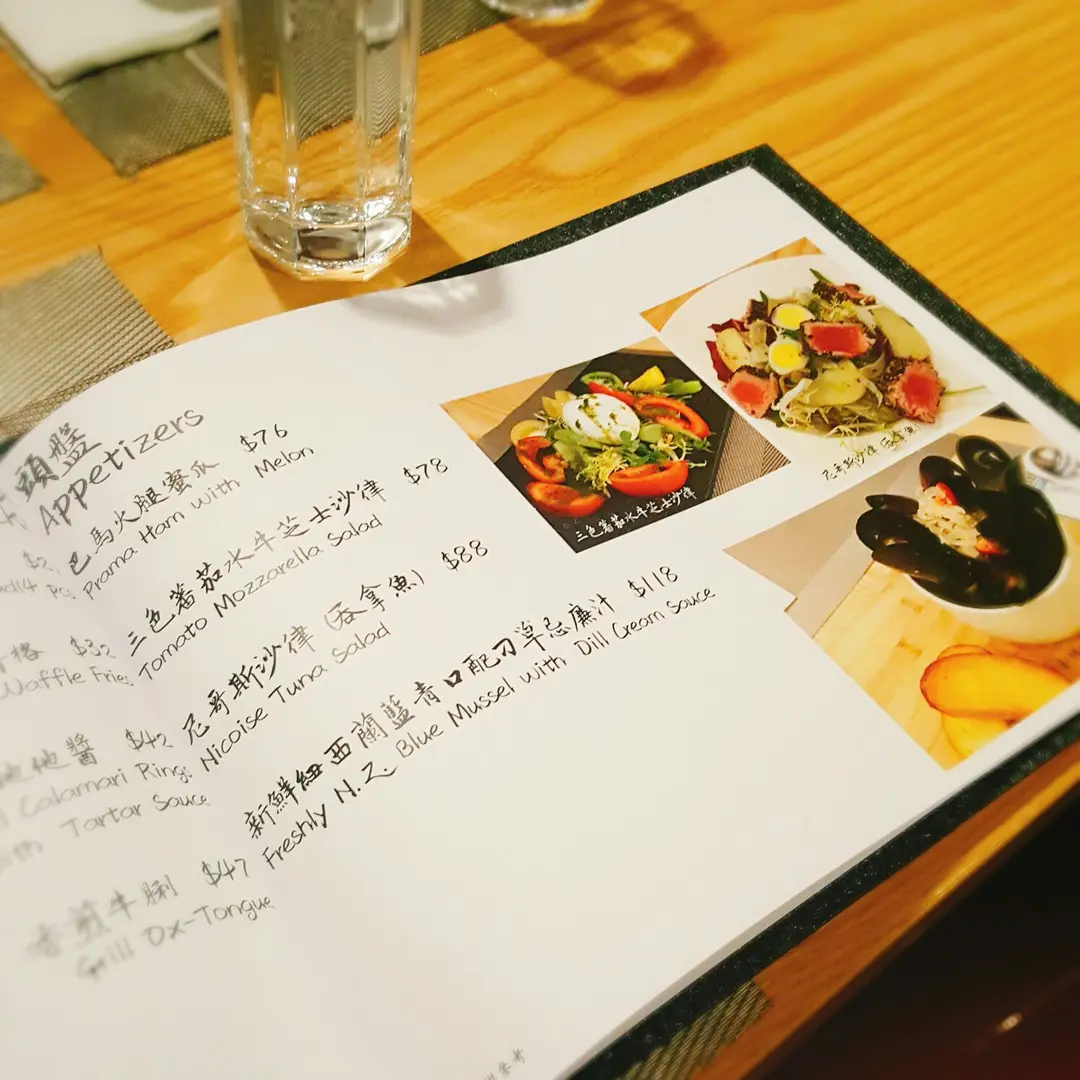 頭盤
Appetizers
巴馬火腿蜜瓜 $76
Prama Ham with Melon
三色蕃茄水牛芝士沙律 $78
Tomato Mozzarella Salad
尼哥斯沙律 (吞拿魚) $88
Nicoise Tuna Salad
新鮮紐西蘭藍青口配刁草忌廉汁 $118
Freshly N.Z. Blue Mussel with Dill Cream Sauce
格 $32
Waffle Fries
他他醬 $42
Calamari Rings
Tartar Sauce
香煎牛脷 $47
Grill Ox-Tongue
三色蕃茄水牛芝士沙律
尼哥斯沙律 (吞拿魚)